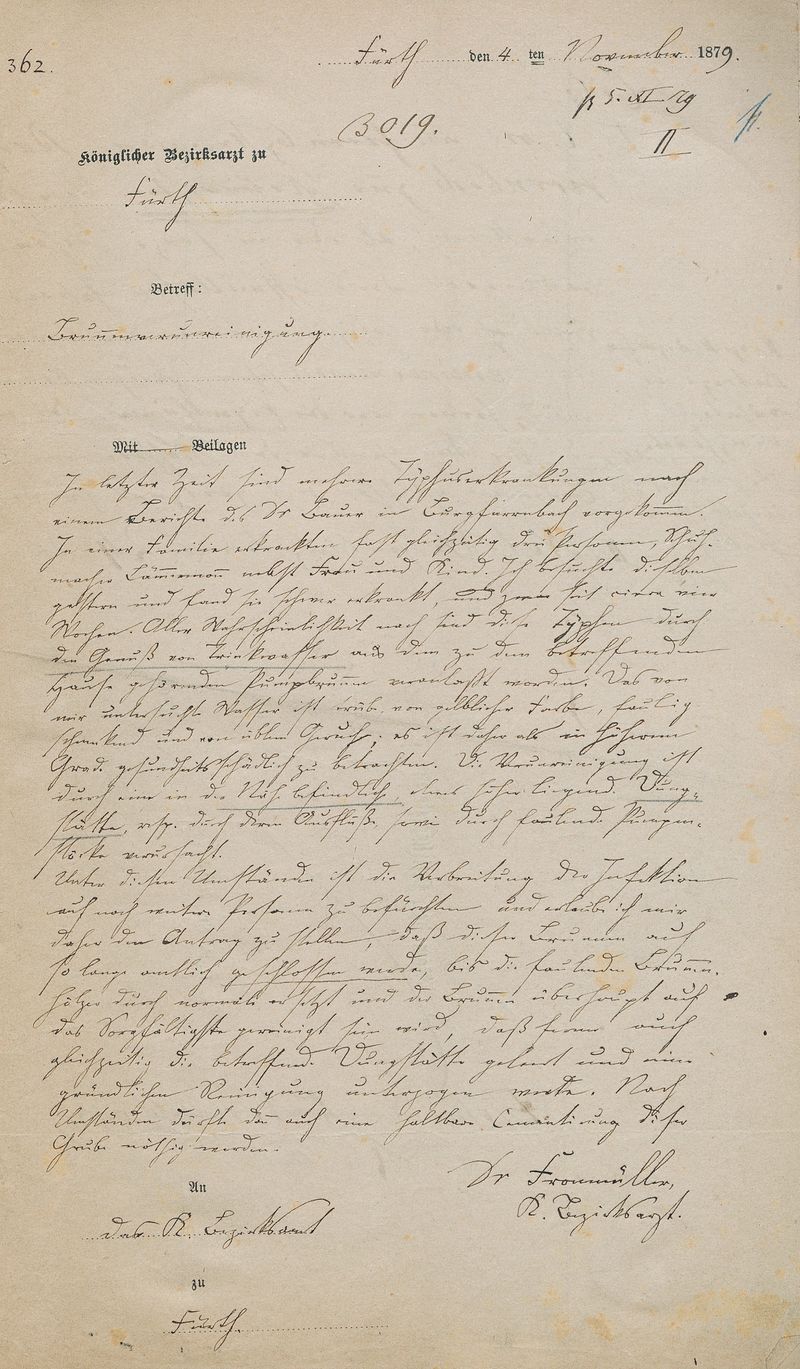 362.
Fürth den 4 ten November 1879.
5. XI. 79
3019.
II
Königlicher Bezirksarzt zu
Fürth
Betreff:
Brunnenverunreinigung.
Mit Beilagen
In letzter Zeit sind mehrere Typhuserkrankungen nach
einem Berichte des Dr Bauer in Burgfarrnbach vorgekommen.
In einer Familie erkrankten fast gleichzeitig drei Personen, Schuh-
macher Lämmermann nebst Frau und Kind. Ich besuchte dieselben
gestern und fand sie schwer erkrankt, und zwar seit circa vier
Wochen. Aller Wahrscheinlichkeit nach sind diese Typhen durch
den Genuß von Trinkwasser aus dem zu dem betreffenden
Hause gehörenden Pumpbrunnen veranlaßt worden. Das von
mir untersuchte Wasser ist trübe, von gelblicher Farbe, faulig
schmeckend und von üblem Geruch; es ist daher als in höherem
Grade gesundheitsschädlich zu betrachten. Die Verunreinigung ist
durch eine in der Nähe befindliche, etwas höher liegende Dung-
stätte, resp. durch deren Ausfluß, sowie durch faulende Pumpen-
stöcke verursacht.
Unter diesen Umständen ist die Verbreitung der Infektion
auf noch weitere Personen zu befürchten und erlaube ich mir
daher den Antrag zu stellen, daß dieser Brunnen auf
so lange amtlich geschlossen werde, bis die faulenden Brunnen-
hölzer durch normale ersetzt und der Brunnen überhaupt auf
das Sorgfältigste gereinigt sein wird, daß ferner auch
gleichzeitig die betreffende Dungstätte geleert und einer
gründlichen Reinigung unterzogen werde. Nach
Umständen dürfte dann auch eine haltbare Cementirung dieser
Grube nöthig werden.
Dr Fronmüller,
K. Bezirksarzt.
An
das K. Bezirksamt
zu
Fürth.